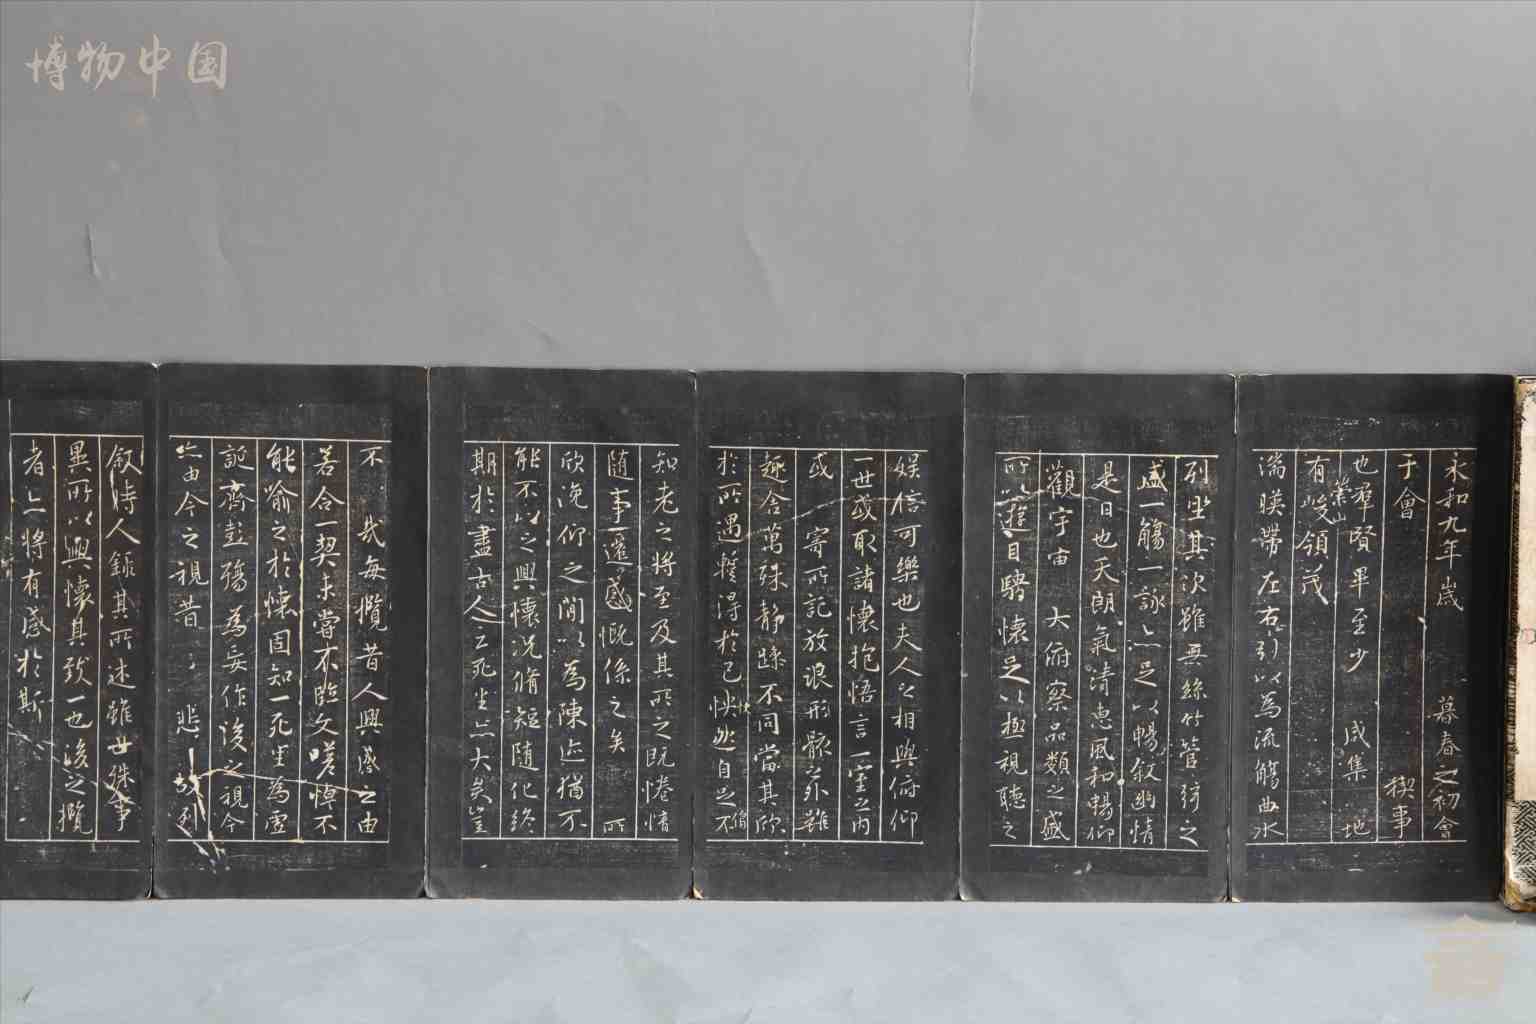 博物中国
永和九年歲 暮春之初會
于會 稧事
也群賢畢至少 咸集 地
有崇山峻領茂
湍暎帶左右引以為流觴曲水
列坐其次雖無絲竹管弦之
盛一觴一詠亦足以暢叙幽情
是日也天朗氣清惠風和暢仰
觀宇宙 大俯察品類之盛
所以遊目騁懷足以極視聽之
娛信可樂也夫人之相與俯仰
一世或取諸懷抱悟言一室之內
或 寄所託放浪形骸之外雖
趣舍萬殊静躁不同當其欣
於所遇蹔得於己怏然自足不
知老之將至及其所之既惓情
随事遷感慨係之矣 所
欣俛仰之閒以為陳迹猶不
能不以之興懷况脩短随化終
期於盡古人云死生亦大矣豈
不 哉每攬昔人興感之由
若合一契未嘗不臨文嗟悼不
能喻之於懷固知一死生為虛
誕齊彭殤為妄作後之視今
亦由今之視昔 悲 故列
叙時人錄其所述雖世殊事
異所以興懷其致一也後之攬
者亦將有感於斯